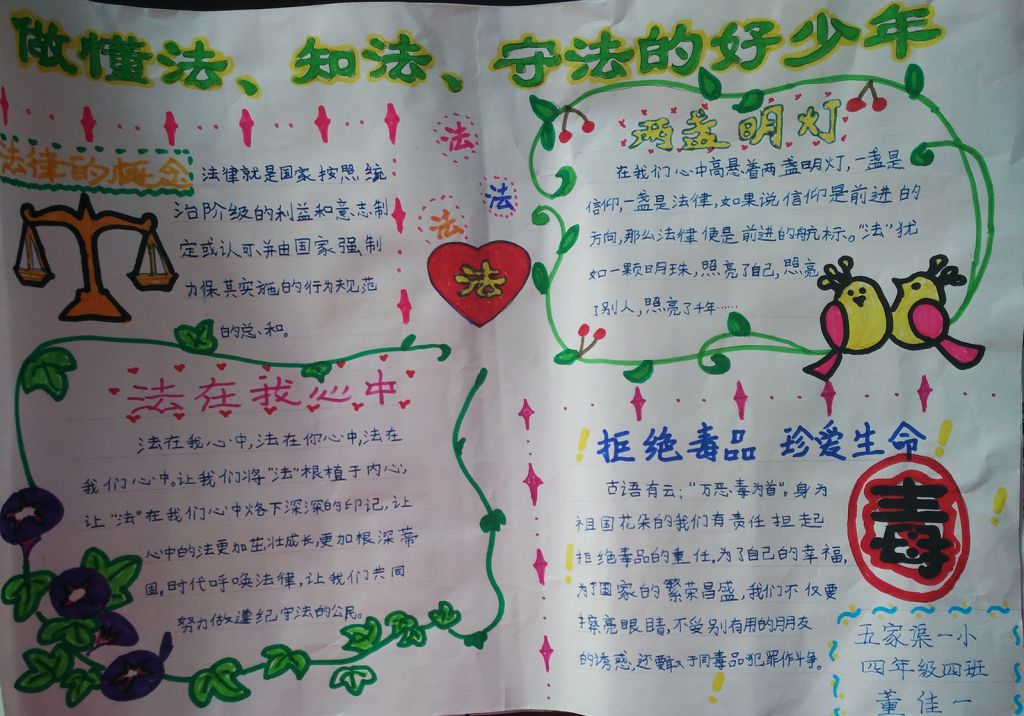 做懂法、知法、守法的好少年
法律的概念
法律就是国家按照统
治阶级的利益和意志制
定或认可,并由国家强制
力保其实施的行为规范
的总和。
法
法
法
法
两盏明灯
在我们心中高悬着两盏明灯,一盏是
信仰,一盏是法律,如果说信仰是前进的
方向,那么法律便是前进的航标。“法”犹
如一颗明珠,照亮了自己,照亮
了别人,照亮了千年……
法在我心中
法在我心中,法在你心中,法在
我们心中。让我们将“法”根植于内心,
让“法”在我们心中烙下深深的印记,让
心中的法更加茁壮成长,更加根深蒂
固。时代呼唤法律,让我们共同
努力做遵纪守法的公民。
拒绝毒品 珍爱生命
古语有云:“万恶毒为首”。身为
祖国花朵的我们有责任担起
拒绝毒品的重任。为了自己的幸福,
为了国家的繁荣昌盛,我们不仅要
擦亮眼睛,不受别有用的朋友
的诱惑,还要敢于同毒品犯罪作斗争。
毒
五家渠一小
四年级四班
董佳一